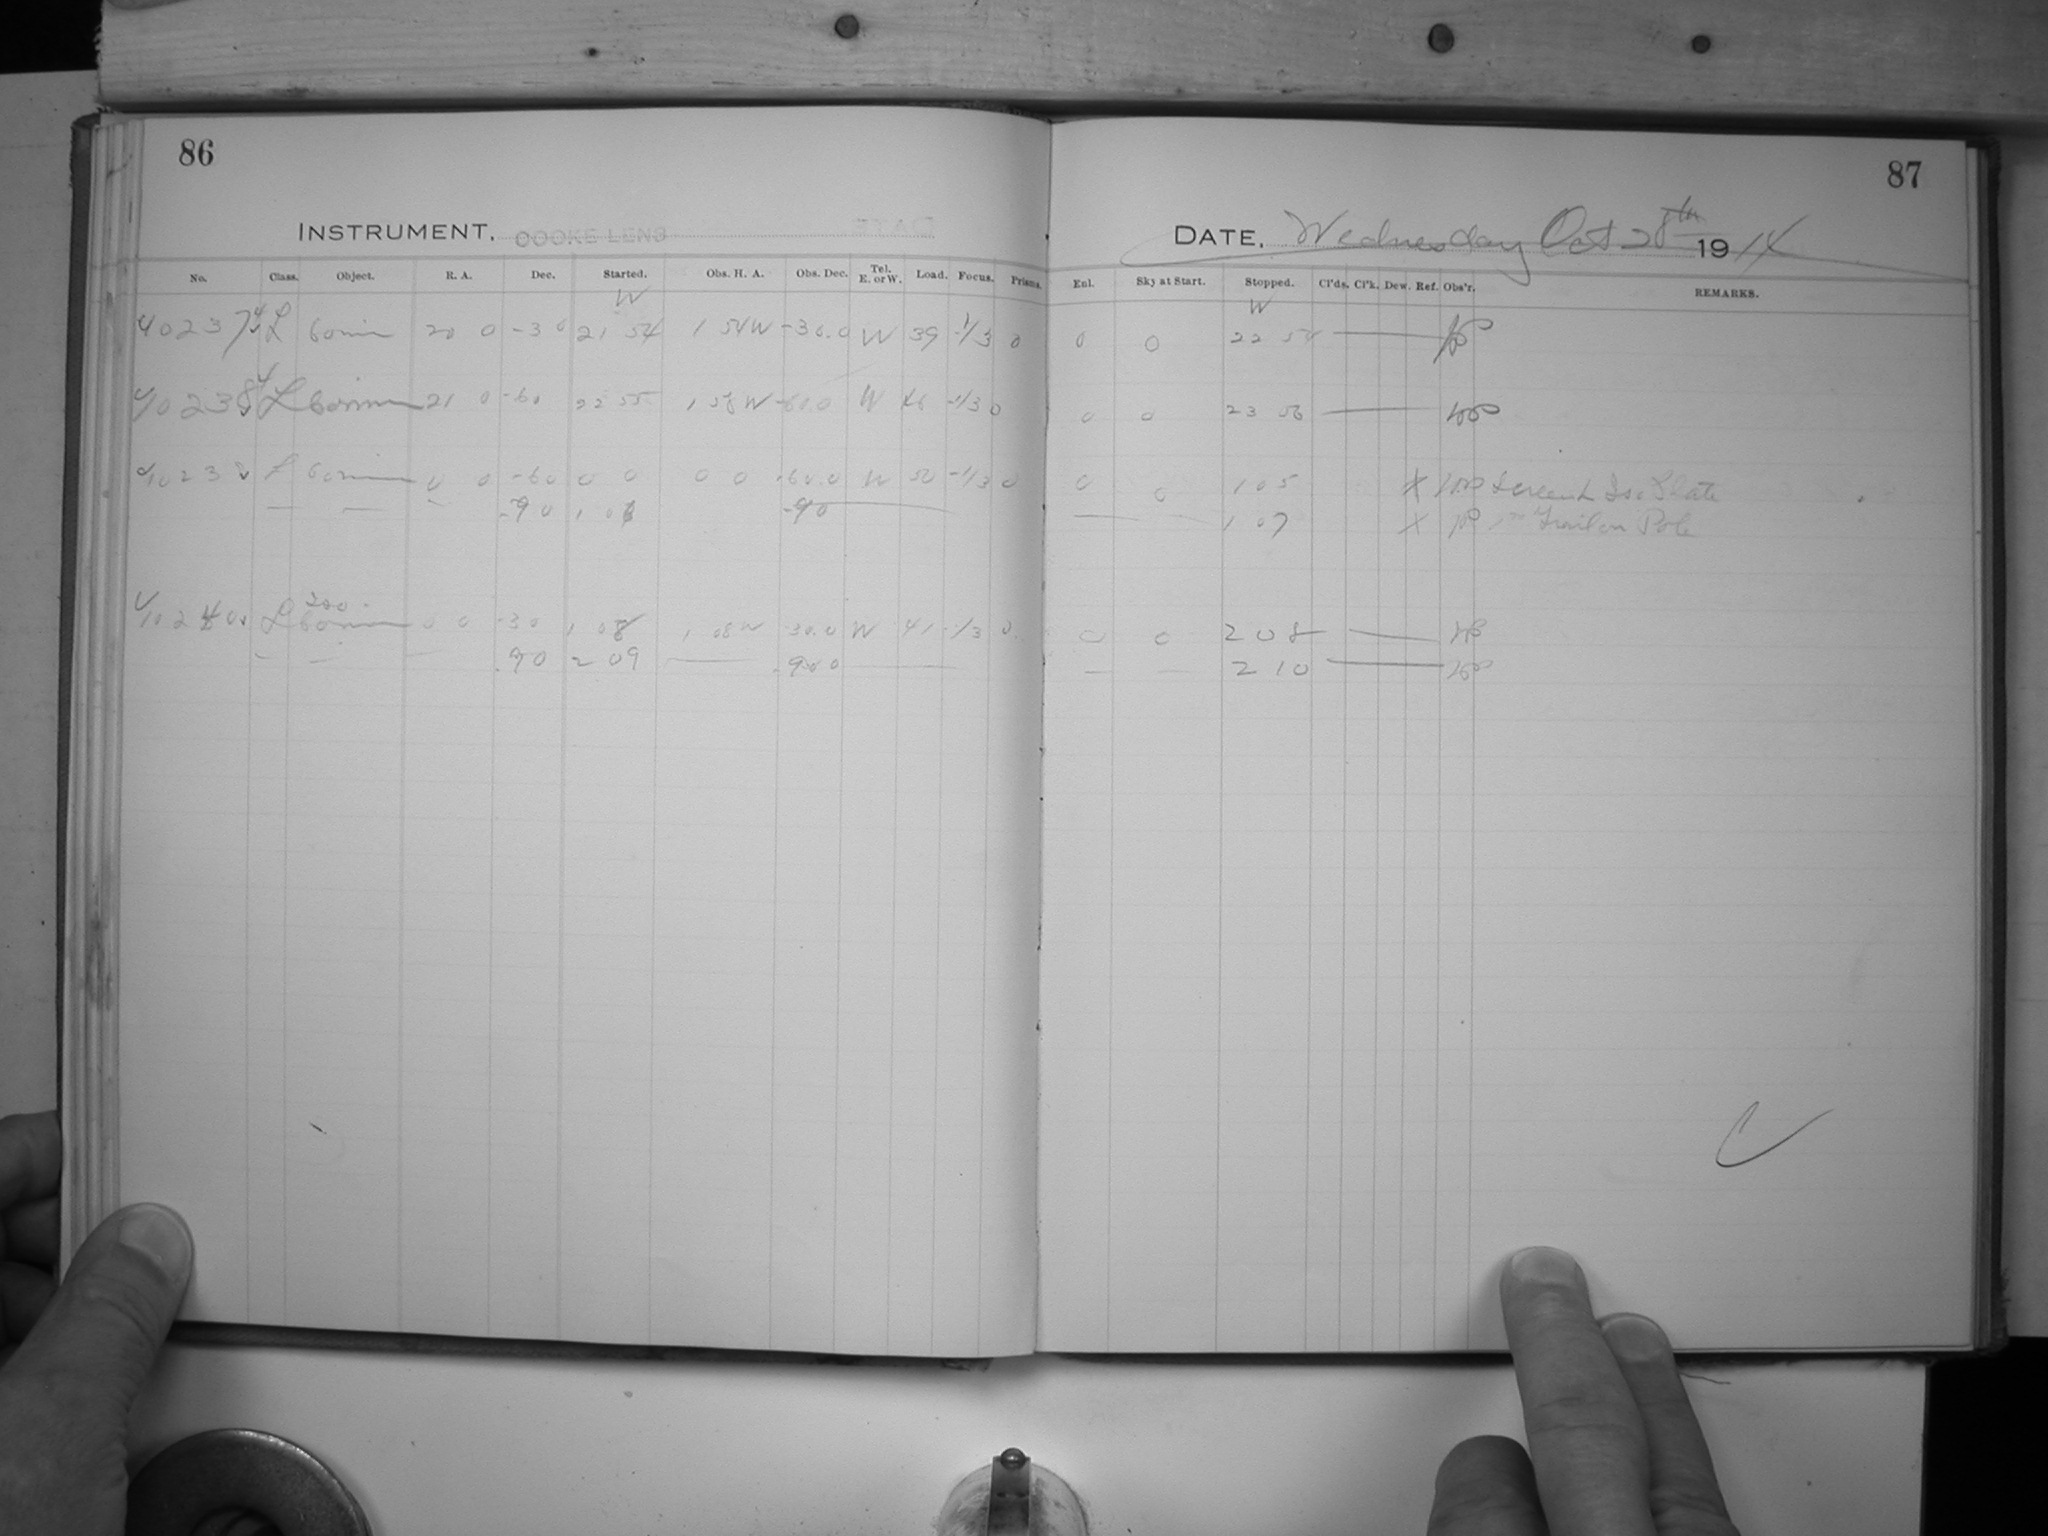 86
INSTRUMENT, COOKE LENS
No. Class. Object. R. A. Dec. Started. Obs. H. A. Obs. Dec. Tel. E. or W. Load. Focus. Prisms.
W
40237 L 60 min 20 0 -30 21 54 1 54 W -30.0 W 39 -1/3 0
40238 L 60 min 21 0 -60 22 55 1 W -60.0 W -1/3 0
L 60 min 0 0 -60 0 0 0 0 -60.0 W 50 -1/3 0
— — — -90 1 -90
40240 L 60 min 0 0 -30 1 08 1 08 W -30.0 W 41 -1/3 0
— — — -90 2 09 — -90.0
87
DATE, Wednesday Oct 28th 1914
Enl. Sky at Start. Stopped. Cl'ds. Cl'k. Dew. Ref. Obs'r. REMARKS.
W
0 0 22 54 —
0 0 23 56 —
0 0 1 05 X Plate
— — 1 07 X Trail on Pole
0 0 2 08 —
— — 2 10 —